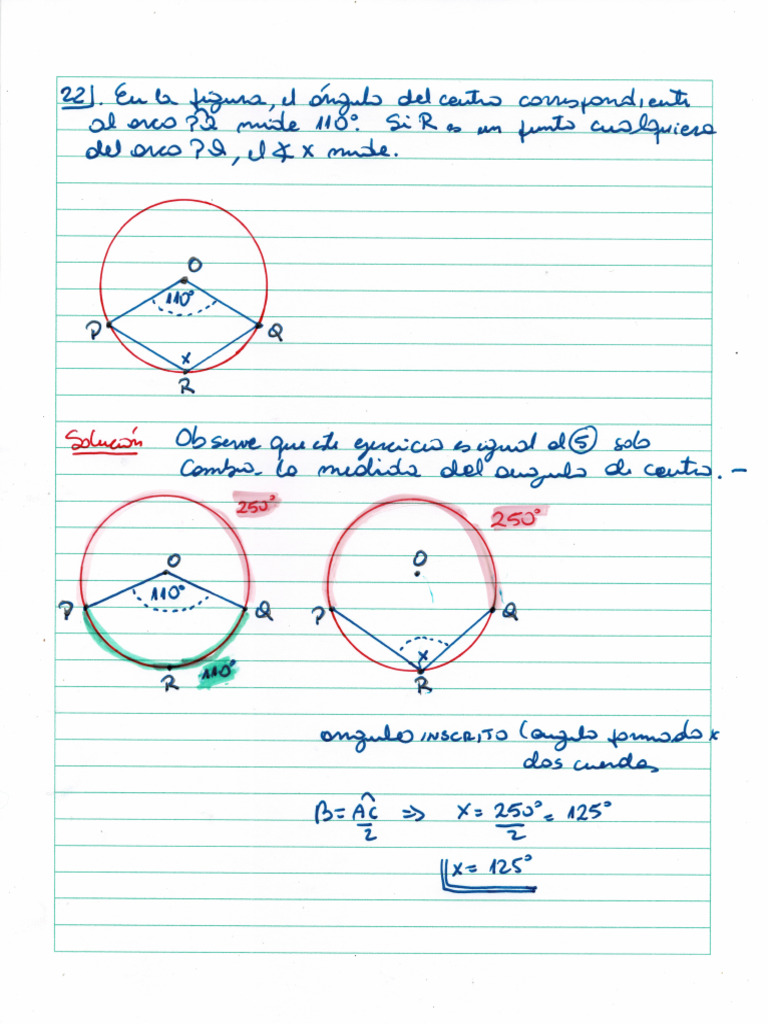 22). En la figura, el ángulo del centro correspondiente
al arco PQ mide 110°. Si R es un punto cualquiera
del arco PQ, el ∡ x mide.
O
110°
P
Q
x
R
Solución Observe que este ejercicio es igual al ⑤ solo
cambia la medida del angulo de centro. -
250°
250°
O
O
110°
P
Q
P
Q
x
R
110°
R
angulo INSCRITO (angulo formado x
dos cuerdas
B = AC/2 ⇒ x = 250°/2 = 125°
x = 125°